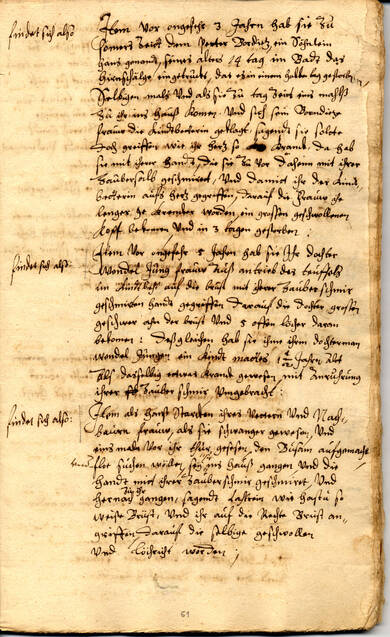 findet sich also
Item Vor ongefehr 3 Jahren hab sie Zu
Somers Zeitt dem Peter ein Söhnlein
Hans genant, seines alters 14 tag im Badt das
Hirnschälge eingetruckt, das es in einem halben tag gestorben,
Selbigen mals Und als sie zu tag Zeit
Zu ihr ins Hauß Komen, Und sich sein
frauw die Kindtbetterin geklagt, sagende sie solte
doch greiffen wie ihr hertz so Kranck, da hab
sie mit ihrer handt, die sie Zu Vor daheim mit ihrer
Zaubersalb geschmiret, Und damit ihr der Kindt
betterin aufs hertz gegriffen, darauf die frauw ie
lenger ie krencker worden, ein grossen geschwollenen
Kopf bekomen, Und in 3 tagen gestorben :
findet sich also:
Item Vor ongefehr 5 Jahren hab sie Ihr dochter
Wendel Jung frauw Auß antrieb des teuffels
im Kindtbett auf die brust mit ihrer Zauberschmir
geschmirten handt gegriffen darauf die dochter grossen
geschwer ahn der brust Und 5 offen locher daran
bekomen : Deßgleichen hab sie ihme ihrem dochterman
Wendel Jungen ein Kindt 1 1/2 Jahr Alt
Als dasselbig etwas kranck gewesen, mit Anrührung
ihrer Zauber schmir Umgebracht :
findet sich also:
Item als Hanß ihres Vettern Und Nach-
bauren frauw, als sie schwanger gewesen, Und
eins mals Vor ihr thür gesessen, den Busam aufgemacht,
flee suchen wöllen, seye ins hauß gangen Und die
handt mit ihrer Zauberschmir geschmiret, Und
hernach zu ihr gangen, sagende wie hastu so
weise Brust, Und ihr auf die Rechte Brust an-
greiffen, darauf die selbige geschwollen
Und löchricht worden ;
61